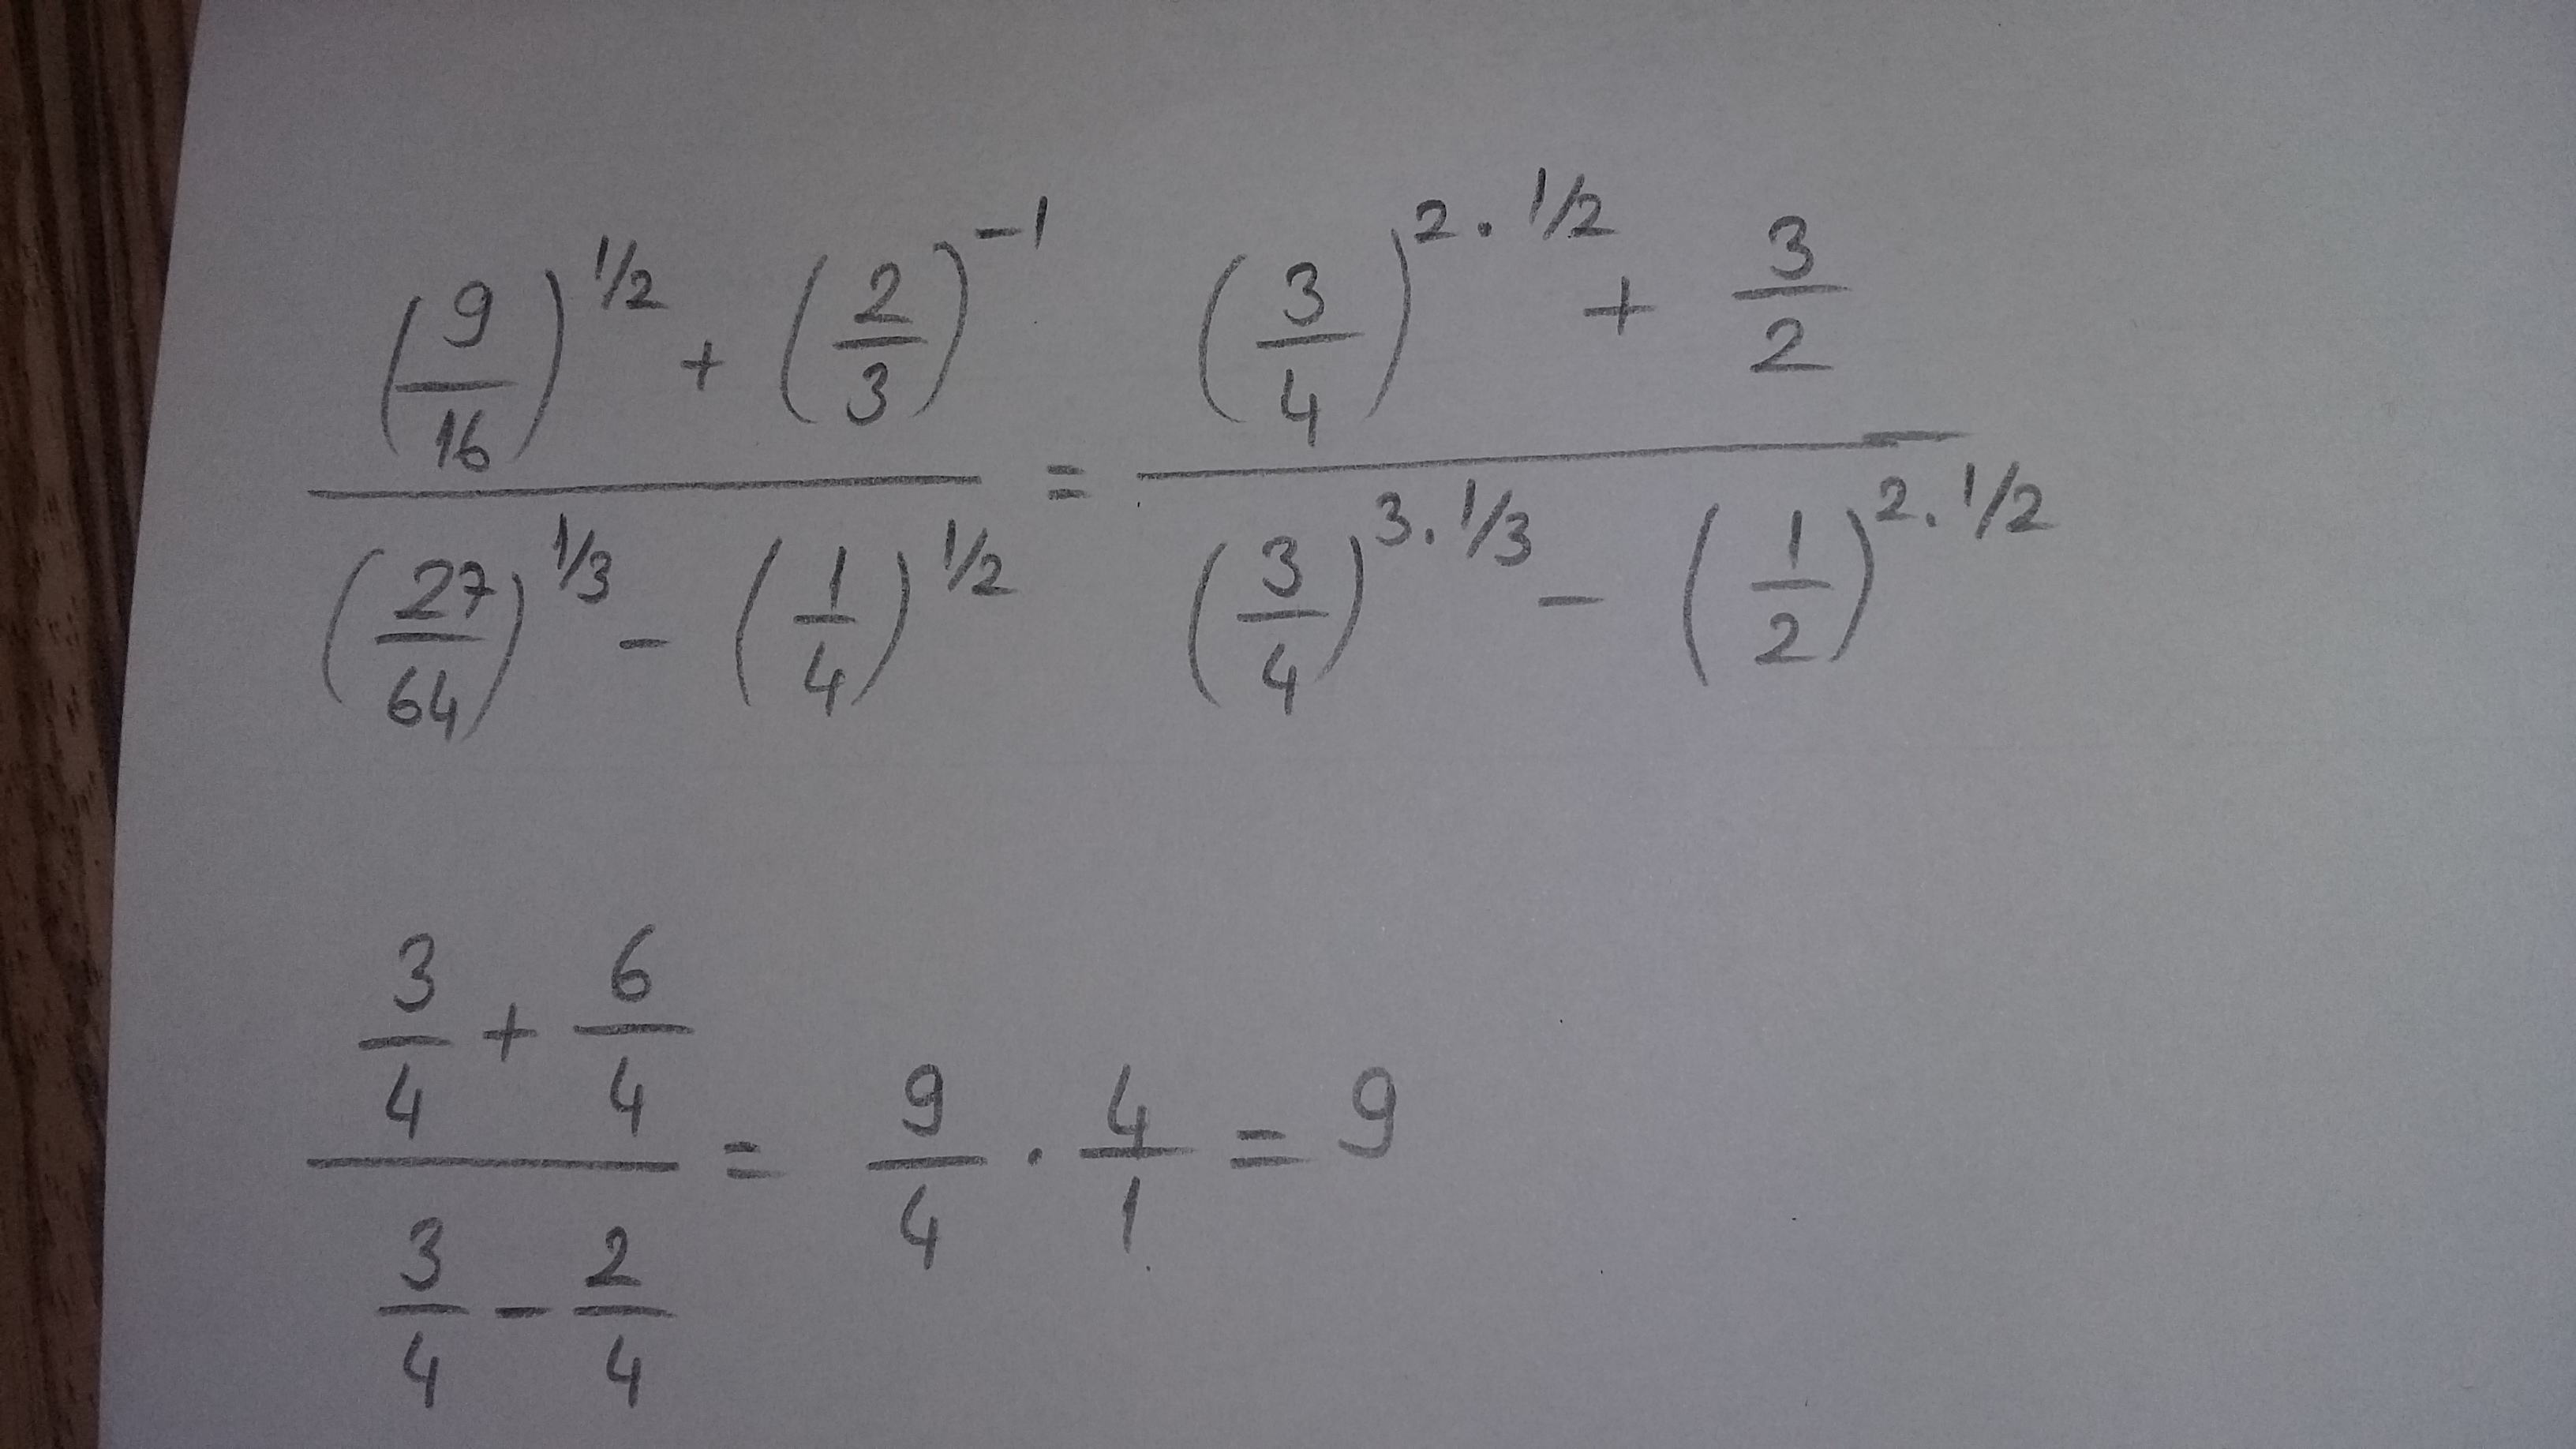 (9/16)^1/2 + (2/3)^-1 / (27/64)^1/3 - (1/4)^1/2 = (3/4)^2·1/2 + 3/2 / (3/4)^3·1/3 - (1/2)^2·1/2
3/4 + 6/4 / 3/4 - 2/4 = 9/4 · 4/1 = 9